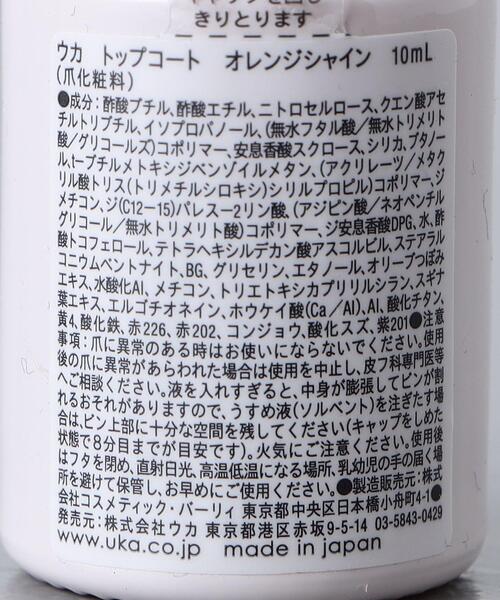 きりとります
ウカ トップコート オレンジシャイン 10mL
(爪化粧料)
●成分：酢酸ブチル、酢酸エチル、ニトロセルロース、クエン酸アセ
チルトリブチル、イソプロパノール、(無水フタル酸／無水トリメリト
酸／グリコールズ)コポリマー、安息香酸スクロース、シリカ、ブタノー
ル、t-ブチルメトキシジベンゾイルメタン、(アクリレーツ／メタク
リル酸トリス(トリメチルシロキシ)シリルプロピル)コポリマー、ジ
メチコン、ジ(C12-15)パレス-2リン酸、(アジピン酸／ネオペンチル
グリコール／無水トリメリト酸)コポリマー、ジ安息香酸DPG、水、酢
酸トコフェロール、テトラヘキシルデカン酸アスコルビル、ステアラル
コニウムベントナイト、BG、グリセリン、エタノール、オリーブつぼみ
エキス、水酸化Al、メチコン、トリエトキシカプリリルシラン、スギナ
葉エキス、エルゴチオネイン、ホウケイ酸(Ca／Al)、Al、酸化チタン、
黄4、酸化鉄、赤226、赤202、コンジョウ、酸化スズ、紫201●注意
事項：爪に異常のある時はお使いにならないでください。使用
後の爪に異常があらわれた場合は使用を中止し、皮フ科専門医等
へご相談ください。液を入れすぎると、中身が膨張してビンが割
れるおそれがありますので、うすめ液(ソルベント)を注ぎたす場
合は、ビン上部に十分な空間を残してください(キャップをしめた
状態で8分目までが目安です)。火気にご注意ください。使用後
はフタを閉め、直射日光、高温低温になる場所、乳幼児の手の届く場
所を避けて保管し、お早めにご使用ください。●製造販売元：株式
会社コスメティック・バーリィ 東京都中央区日本橋小舟町4-1●
発売元：株式会社ウカ 東京都港区赤坂9-5-14 03-5843-0429
www.uka.co.jp made in japan